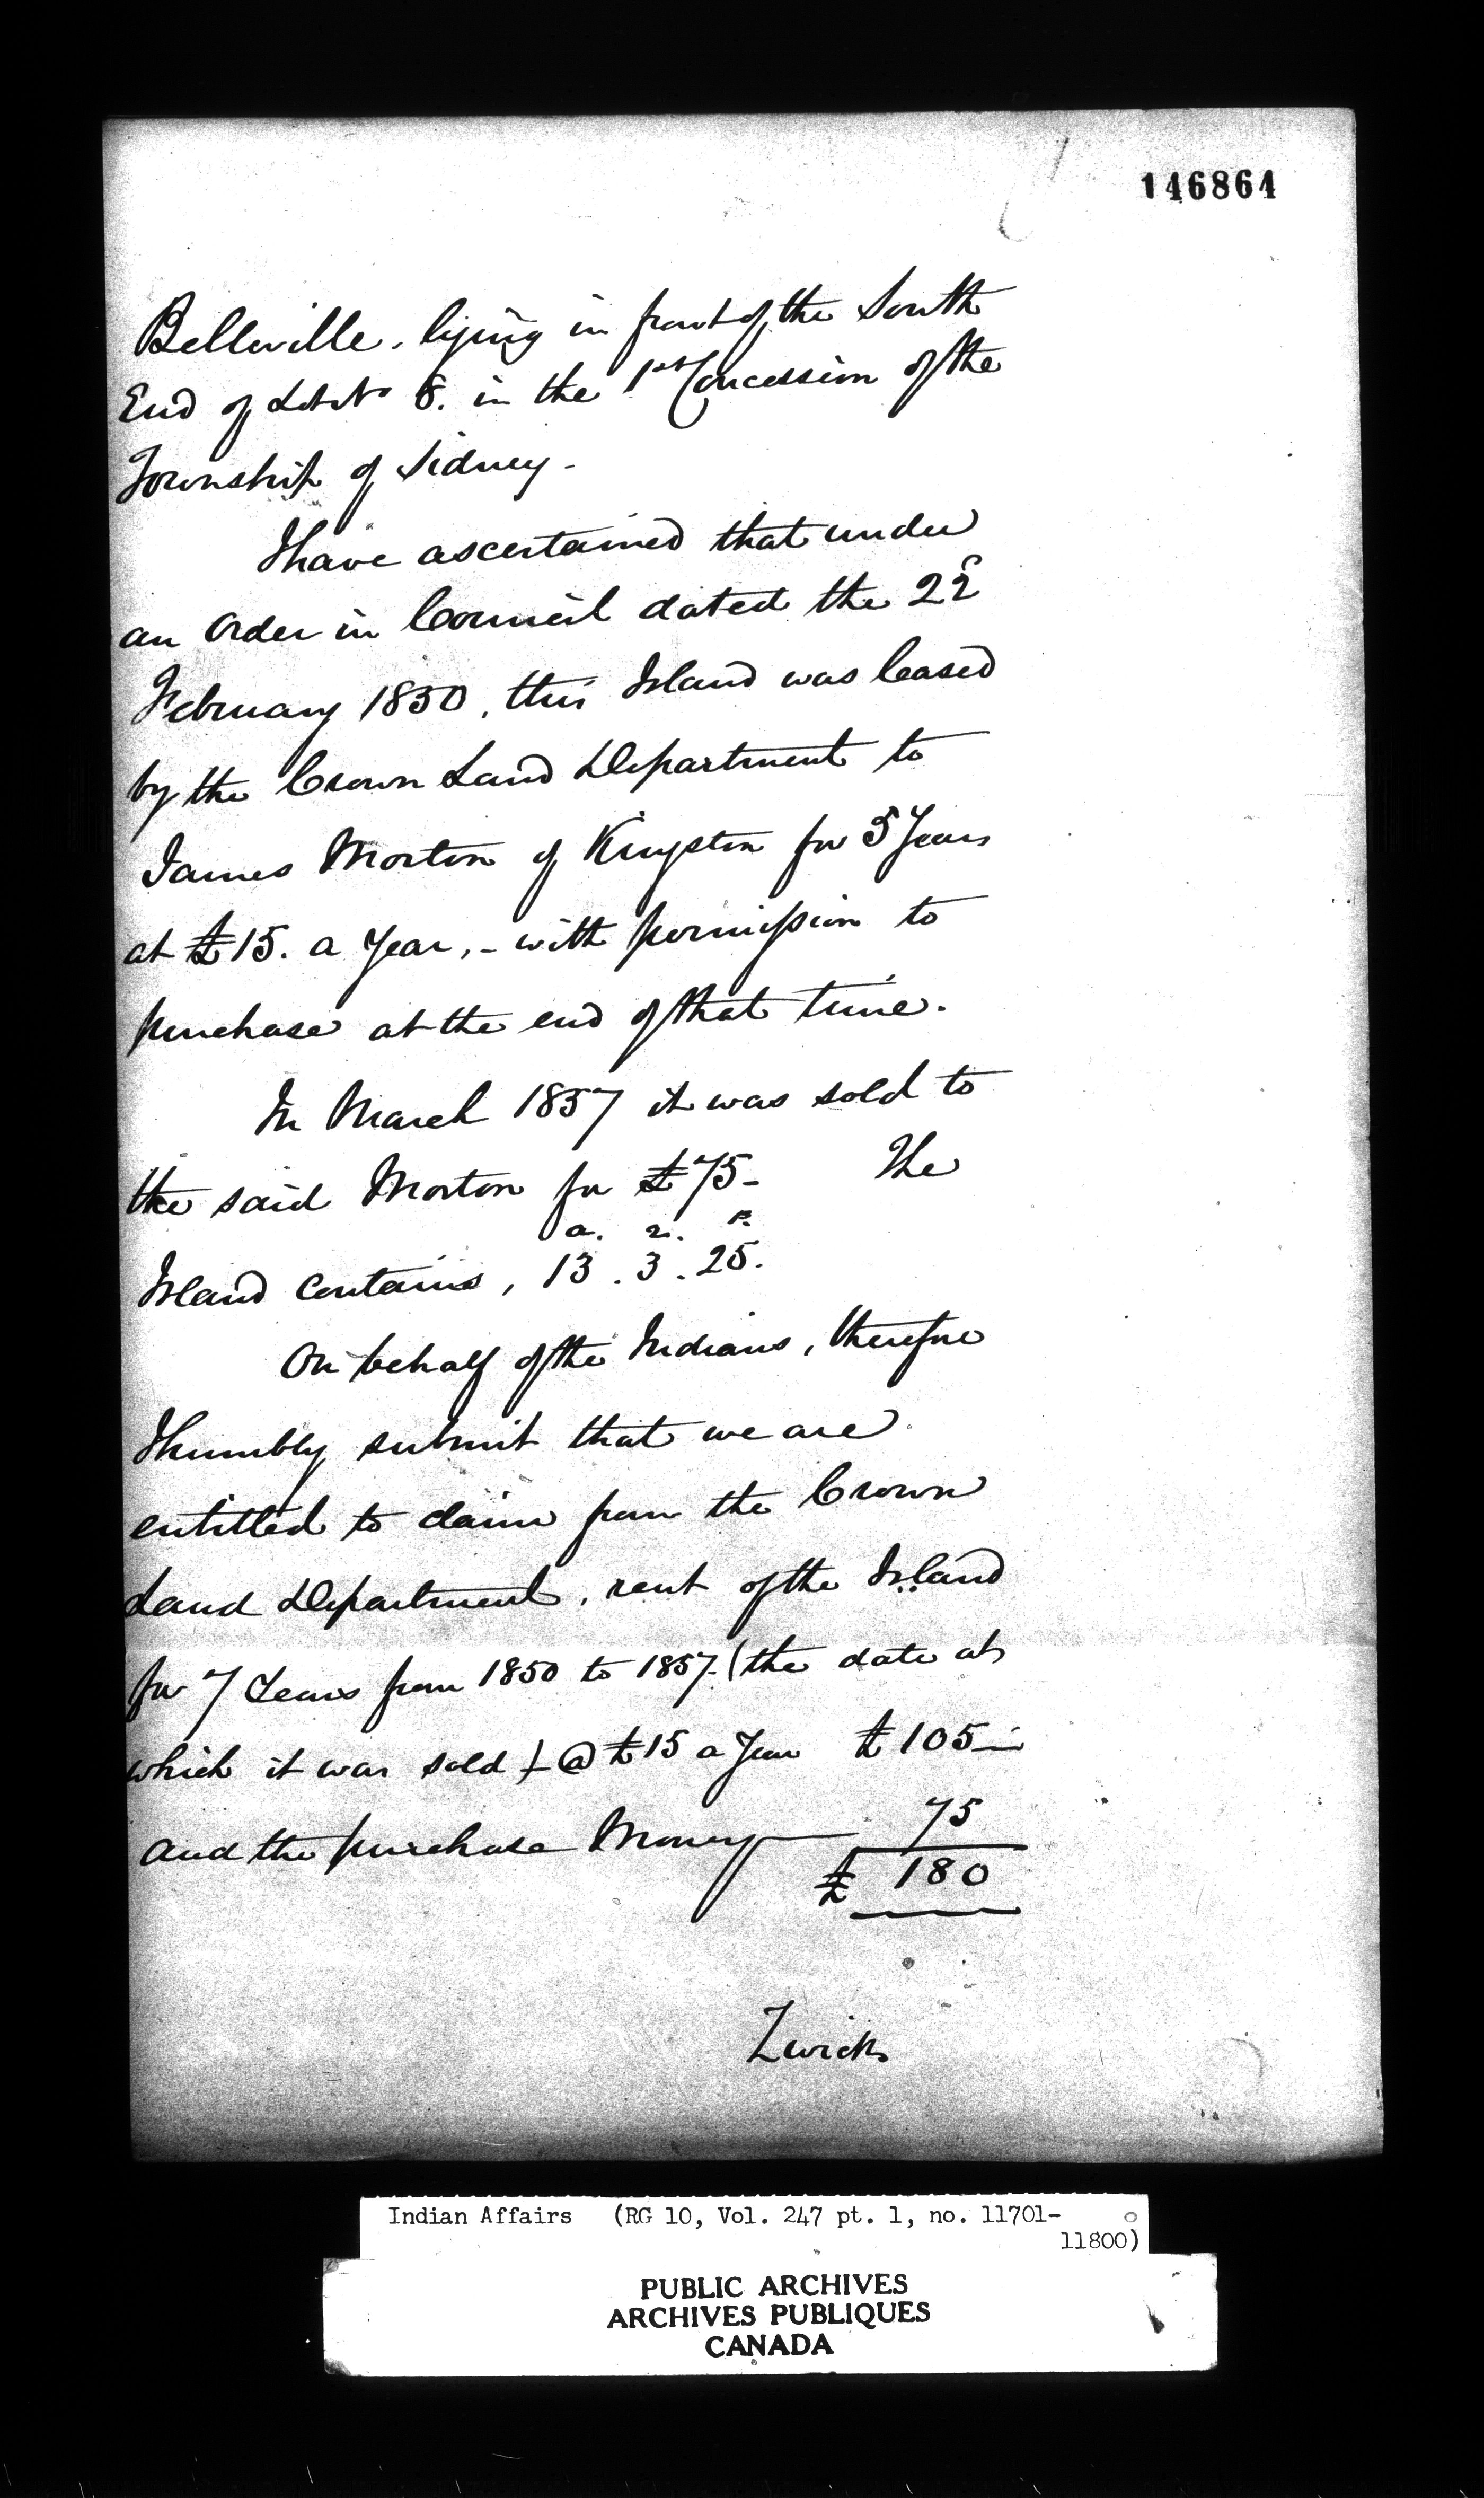 146864
Belleville, lying in front of the South
End of Lot No 8. in the 1st Concession of the
Township of Sidney -
I have ascertained that under
an Order in Council dated the 22d
February 1850, this Island was leased
by the Crown Land Department to
James Morton of Kingston for 5 Years
at £15. a Year, - with permission to
purchase at the end of that time.
In March 1857 it was sold to
the said Morton for £75 - The
a. r. p.
Island contains, 13 . 3 . 25.
On behalf of the Indians, therefore
I humbly submit that we are
entitled to claim from the Crown
Land Department, rent of the Island
for 7 Years from 1850 to 1857. (the date at
which it was sold) @ £15 a Year £105 —
75
and the purchase Money —
£ 180
Zwick
Indian Affairs (RG 10, Vol. 247 pt. 1, no. 11701-
11800)
PUBLIC ARCHIVES
ARCHIVES PUBLIQUES
CANADA